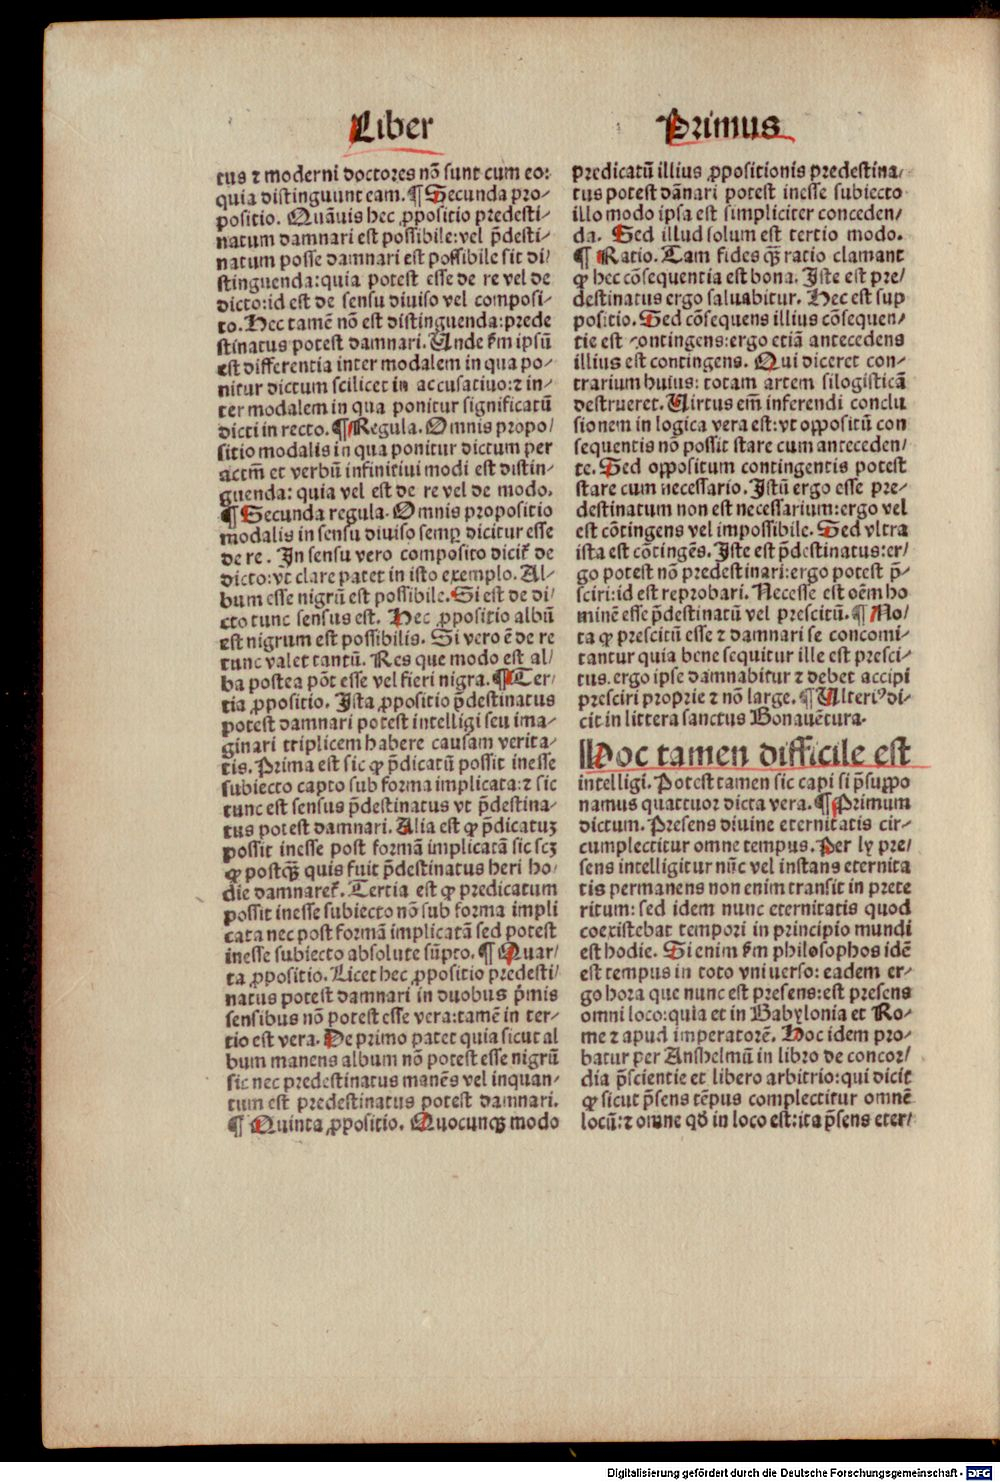 Liber
Primus
tus ⁊ moderni doctores nõ sunt cum eo:
quia distinguunt eam. ¶ Secunda pro⸗
positio. Quãuis hec ꝓpositio predesti⸗
natum damnari est possibile: vel p̃desti⸗
natum posse damnari est possibile sit di⸗
stinguenda: quia potest esse de re vel de
dicto: id est de sensu diuiso vel composi⸗
to. Hec tamẽ nõ est distinguenda: prede
stinatus potest damnari. Unde s̃m ipsũ
est differentia inter modalem in qua po⸗
nitur dictum scilicet in accusatiuo: ⁊ in⸗
ter modalem in qua ponitur significatũ
dicti in recto. ¶ Regula. Omnis propo⸗
sitio modalis in qua ponitur dictum per
actm̃ et verbũ infinitiui modi est distin⸗
guenda: quia vel est de re vel de modo.
¶ Secunda regula. Omnis propositio
modalis in sensu diuiso semꝑ dicitur esse
de re. In sensu vero composito dicit᷑ de
dicto: vt clare patet in isto exemplo. Al⸗
bum esse nigrũ est possibile. Si est de di⸗
cto tunc sensus est. Hec ꝓpositio albũ
est nigrum est possibilis. Si vero ẽ de re
tunc valet tantũ. Res que modo est al⸗
ba postea põt esse vel fieri nigra. ¶ Ter⸗
tia ꝓpositio. Ista ꝓpositio p̃destinatus
potest damnari potest intelligi seu ima⸗
ginari triplicem habere causam verita⸗
tis. Prima est sic ꝙ p̃dicatũ possit inesse
subiecto capto sub forma implicata: ⁊ sic
tunc est sensus p̃destinatus vt p̃destina⸗
tus potest damnari. Alia est ꝙ p̃dicatuꝫ
possit inesse post formã implicatã sic scꝫ
ꝙ postqꝫ̃ quis fuit p̃destinatus heri ho⸗
die damnaret᷑. Tertia est ꝙ predicatum
possit inesse subiecto nõ sub forma impli
cata nec post formã implicatã sed potest
inesse subiecto absolute sũpto. ¶ Quar⸗
ta ꝓpositio. Licet hec ꝓpositio predesti⸗
natus potest damnari in duobus p̃mis
sensibus nõ potest esse vera: tamẽ in ter⸗
tio est vera. De primo patet quia sicut al
bum manens album nõ potest esse nigrũ
sic nec predestinatus manẽs vel inquan⸗
tum est predestinatus potest damnari.
¶ Quinta ꝓpositio. Quocunqꝫ modo
predicatũ illius ꝓpositionis predestina⸗
tus potest dãnari potest inesse subiecto
illo modo ipsa est simpliciter conceden⸗
da. Sed illud solum est tertio modo.
¶ Ratio. Tam fides qꝫ̃ ratio clamant
ꝙ hec cõsequentia est bona. Iste est pre⸗
destinatus ergo saluabitur. Hec est sup
positio. Sed cõsequens illius cõsequen⸗
tie est contingens: ergo etiã antecedens
illius est contingens. Qui diceret con⸗
trarium huius: totam artem silogisticã
destrueret. Virtus em̃ inferendi conclu
sionem in logica vera est: vt oꝓpositũ con
sequentis nõ possit stare cum anteceden⸗
te. Sed oꝓpositum contingentis potest
stare cum necessario. Istũ ergo esse pre⸗
destinatum non est necessarium: ergo vel
est cõtingens vel impossibile. Sed vltra
ista est cõtingẽs. Iste est p̃destinatus: er⸗
go potest nõ predestinari: ergo potest p̃⸗
sciri: id est reprobari. Necesse est oẽm ho
minẽ esse p̃destinatũ vel prescitũ. ¶ No⸗
ta ꝙ prescitũ esse ⁊ damnari se concomi⸗
tantur quia bene sequitur ille est presci⸗
tus. ergo ipse damnabitur ⁊ debet accipi
presciri proprie ⁊ nõ large. ¶ Ulteriꝰ di⸗
cit in littera sanctus Bonauẽtura.
Hoc tamen difficile est
intelligi. Potest tamen sic capi si p̃suꝓpo
namus quattuor dicta vera. ¶ Primum
dictum. Presens diuine eternitatis cir⸗
cumplectitur omne tempus. Per ly pre⸗
sens intelligitur nũc vel instans eternita
tis permanens non enim transit in prete
ritum: sed idem nunc eternitatis quod
coexistebat tempori in principio mundi
est hodie. Si enim s̃m philosophos idẽ
est tempus in toto vniuerso: eadem er⸗
go hora que nunc est presens: est presens
omni loco: quia et in Babylonia et Ro⸗
me ⁊ apud imperatorẽ. Hoc idem pro⸗
batur per Anshelmũ in libro de concor⸗
dia p̃scientie et libero arbitrio: qui dicit
ꝙ sicut p̃sens tẽpus complectitur omnẽ
locũ: ⁊ omne qð in loco est: ita p̃sens eter⸗
Digitalisierung gefördert durch die Deutsche Forschungsgemeinschaft - DFG